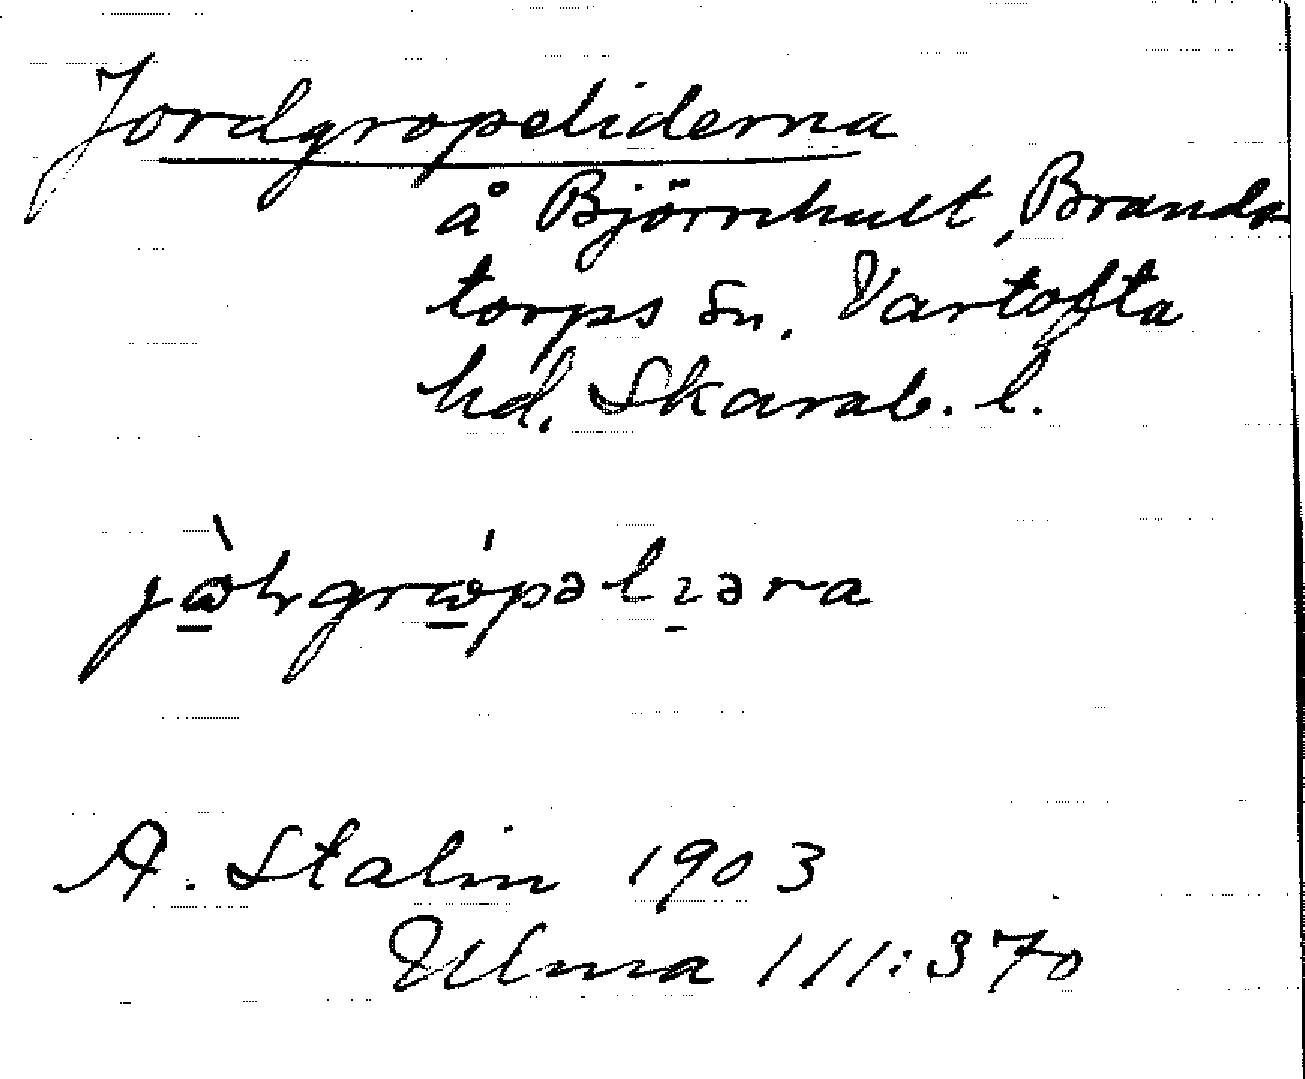 Jordgropeliderna
å Björnhult, Brands
torps sn. Vartofta
hd. Skarab. l.
A. Stalin 1903
Ulma 111:370